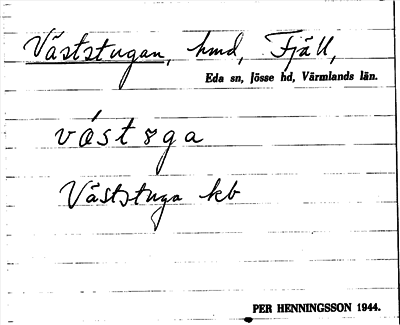 Väststugan, hmd, Fjäll,
Eda sn, Jösse hd, Värmlands län.
västsga
Väststuga kb
PER HENNINGSSON 1944.